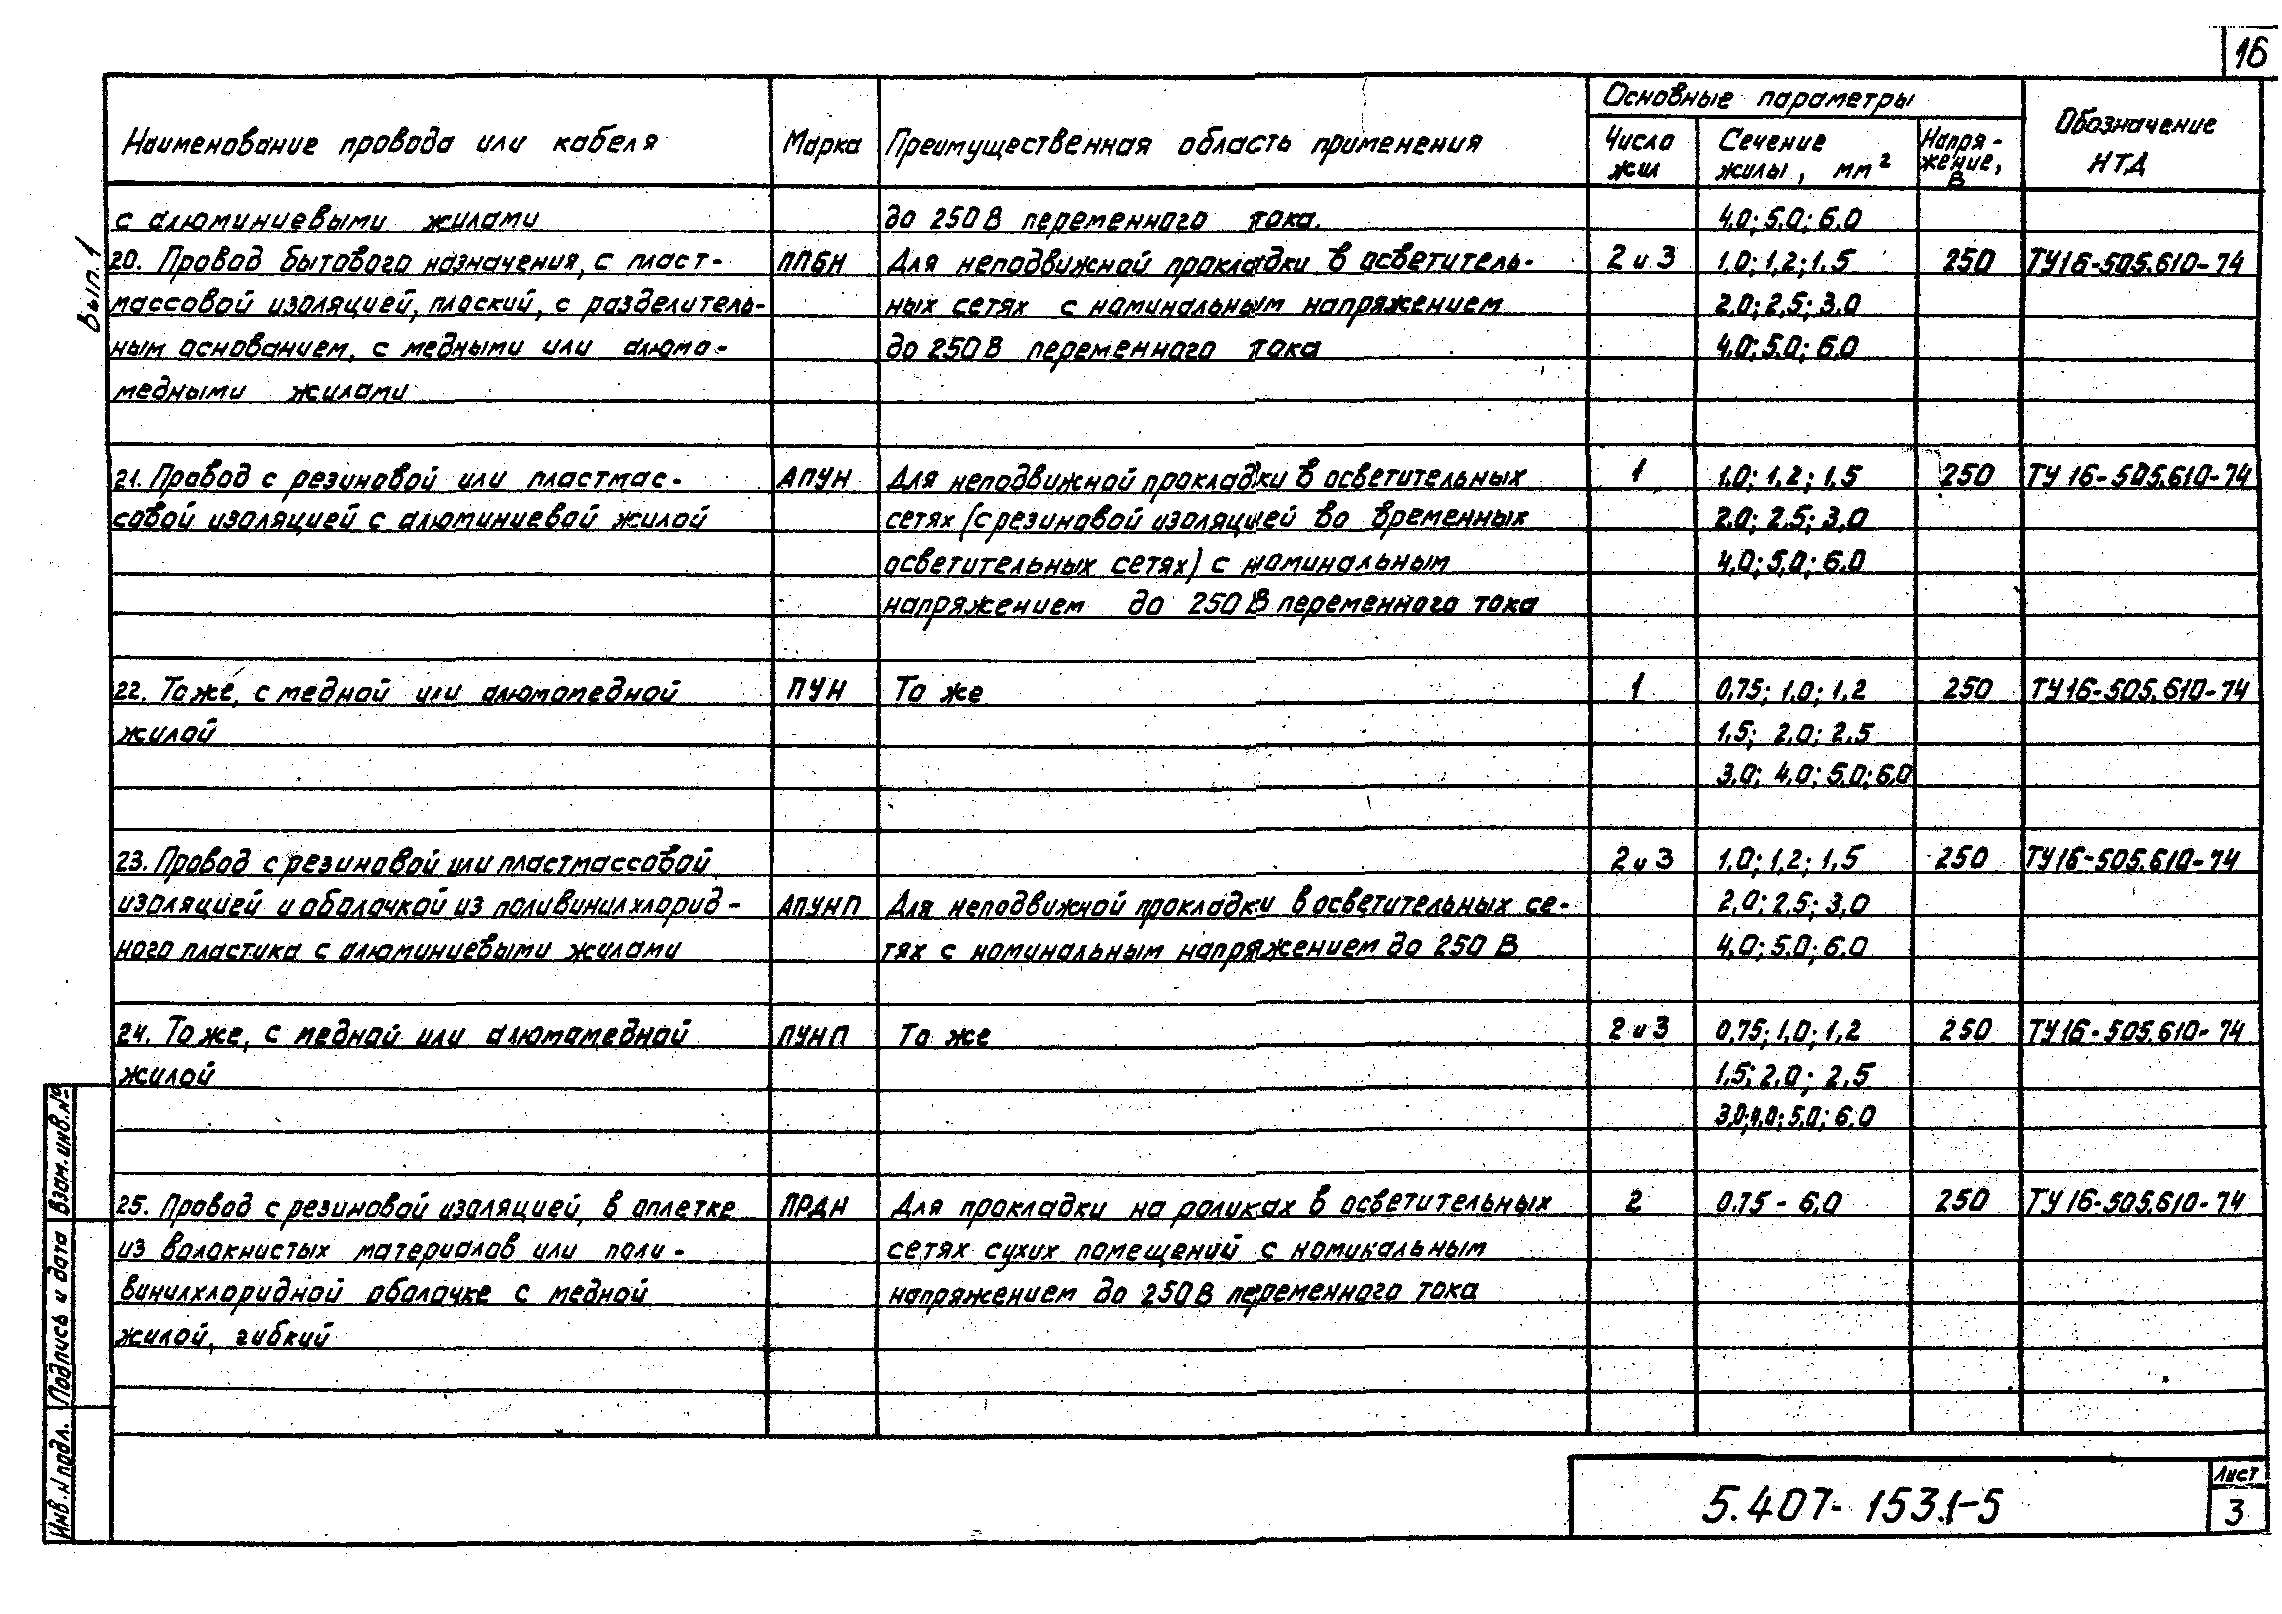 16
Основные параметры
Наименование провода или кабеля Марка Преимущественная область применения Число жил Сечение жилы, мм² Напря-жение, В Обозначение НТД
с алюминиевыми жилами до 250 В переменного тока. 4,0; 5,0; 6,0
20. Провод бытового назначения, с пласт- ППБН Для неподвижной прокладки в осветитель- 2 и 3 1,0; 1,2; 1,5 250 ТУ16-505.610-74
массовой изоляцией, плоский, с разделитель- ных сетях с номинальным напряжением 2,0; 2,5; 3,0
ным основанием, с медными или алюмо- до 250 В переменного тока 4,0; 5,0; 6,0
медными жилами
21. Провод с резиновой или пластмас- АПУН Для неподвижной прокладки в осветительных 1 1,0; 1,2; 1,5 250 ТУ 16-505.610-74
совой изоляцией с алюминиевой жилой сетях (с резиновой изоляцией во временных 2,0; 2,5; 3,0
осветительных сетях) с номинальным 4,0; 5,0; 6,0
напряжением до 250 В переменного тока
22. То же, с медной или алюмомедной ПУН То же 1 0,75; 1,0; 1,2 250 ТУ16-505.610-74
жилой 1,5; 2,0; 2,5
3,0; 4,0; 5,0; 6,0
23. Провод с резиновой или пластмассовой 2 и 3 1,0; 1,2; 1,5 250 ТУ16-505.610-74
изоляцией и оболочкой из поливинилхлорид- АПУНП Для неподвижной прокладки в осветительных се- 2,0; 2,5; 3,0
ного пластика с алюминиевыми жилами тях с номинальным напряжением до 250 В 4,0; 5,0; 6,0
24. То же, с медной или алюмомедной ПУНП То же 2 и 3 0,75; 1,0; 1,2 250 ТУ16-505.610-74
жилой 1,5; 2,0; 2,5
3,0; 4,0; 5,0; 6,0
25. Провод с резиновой изоляцией, в оплетке ПРДН Для прокладки на роликах в осветительных 2 0,75 - 6,0 250 ТУ 16-505.610-74
из волокнистых материалов или поли- сетях сухих помещений с номинальным
винилхлоридной оболочке с медной напряжением до 250 В переменного тока
жилой, гибкий
Вып. 1
Взам. инв. №
Подпись и дата
Инв. N подл.
5.407-153.1-5
Лист
3